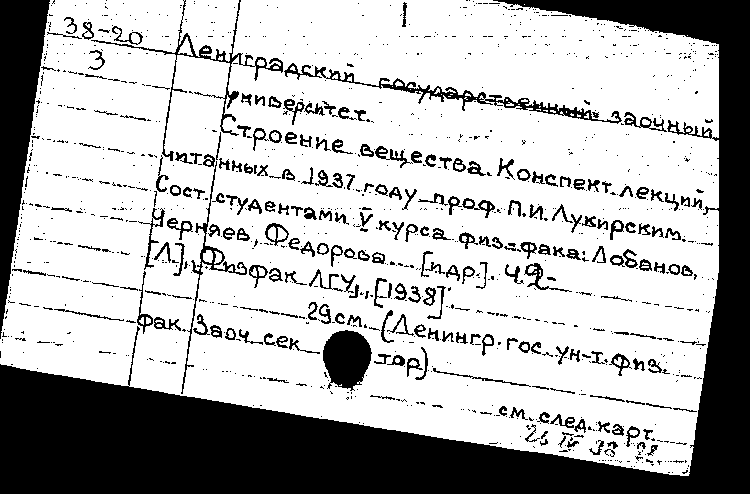 38-20
3
Лениградский государственный заочный
университет.
Строение вещества. Конспект лекций,
читанных в 1937 году проф. П.И. Лукирским.
Сост. студентами V курса физ-фака: Лобанов,
Черняев, Федорова... [и др.]. Ч.
[Л.], Физфак ЛГУ, [1938].
29 см. (Ленингр. гос. ун-т. физ.
фак. Заоч. сек тор).
см. след. карт.